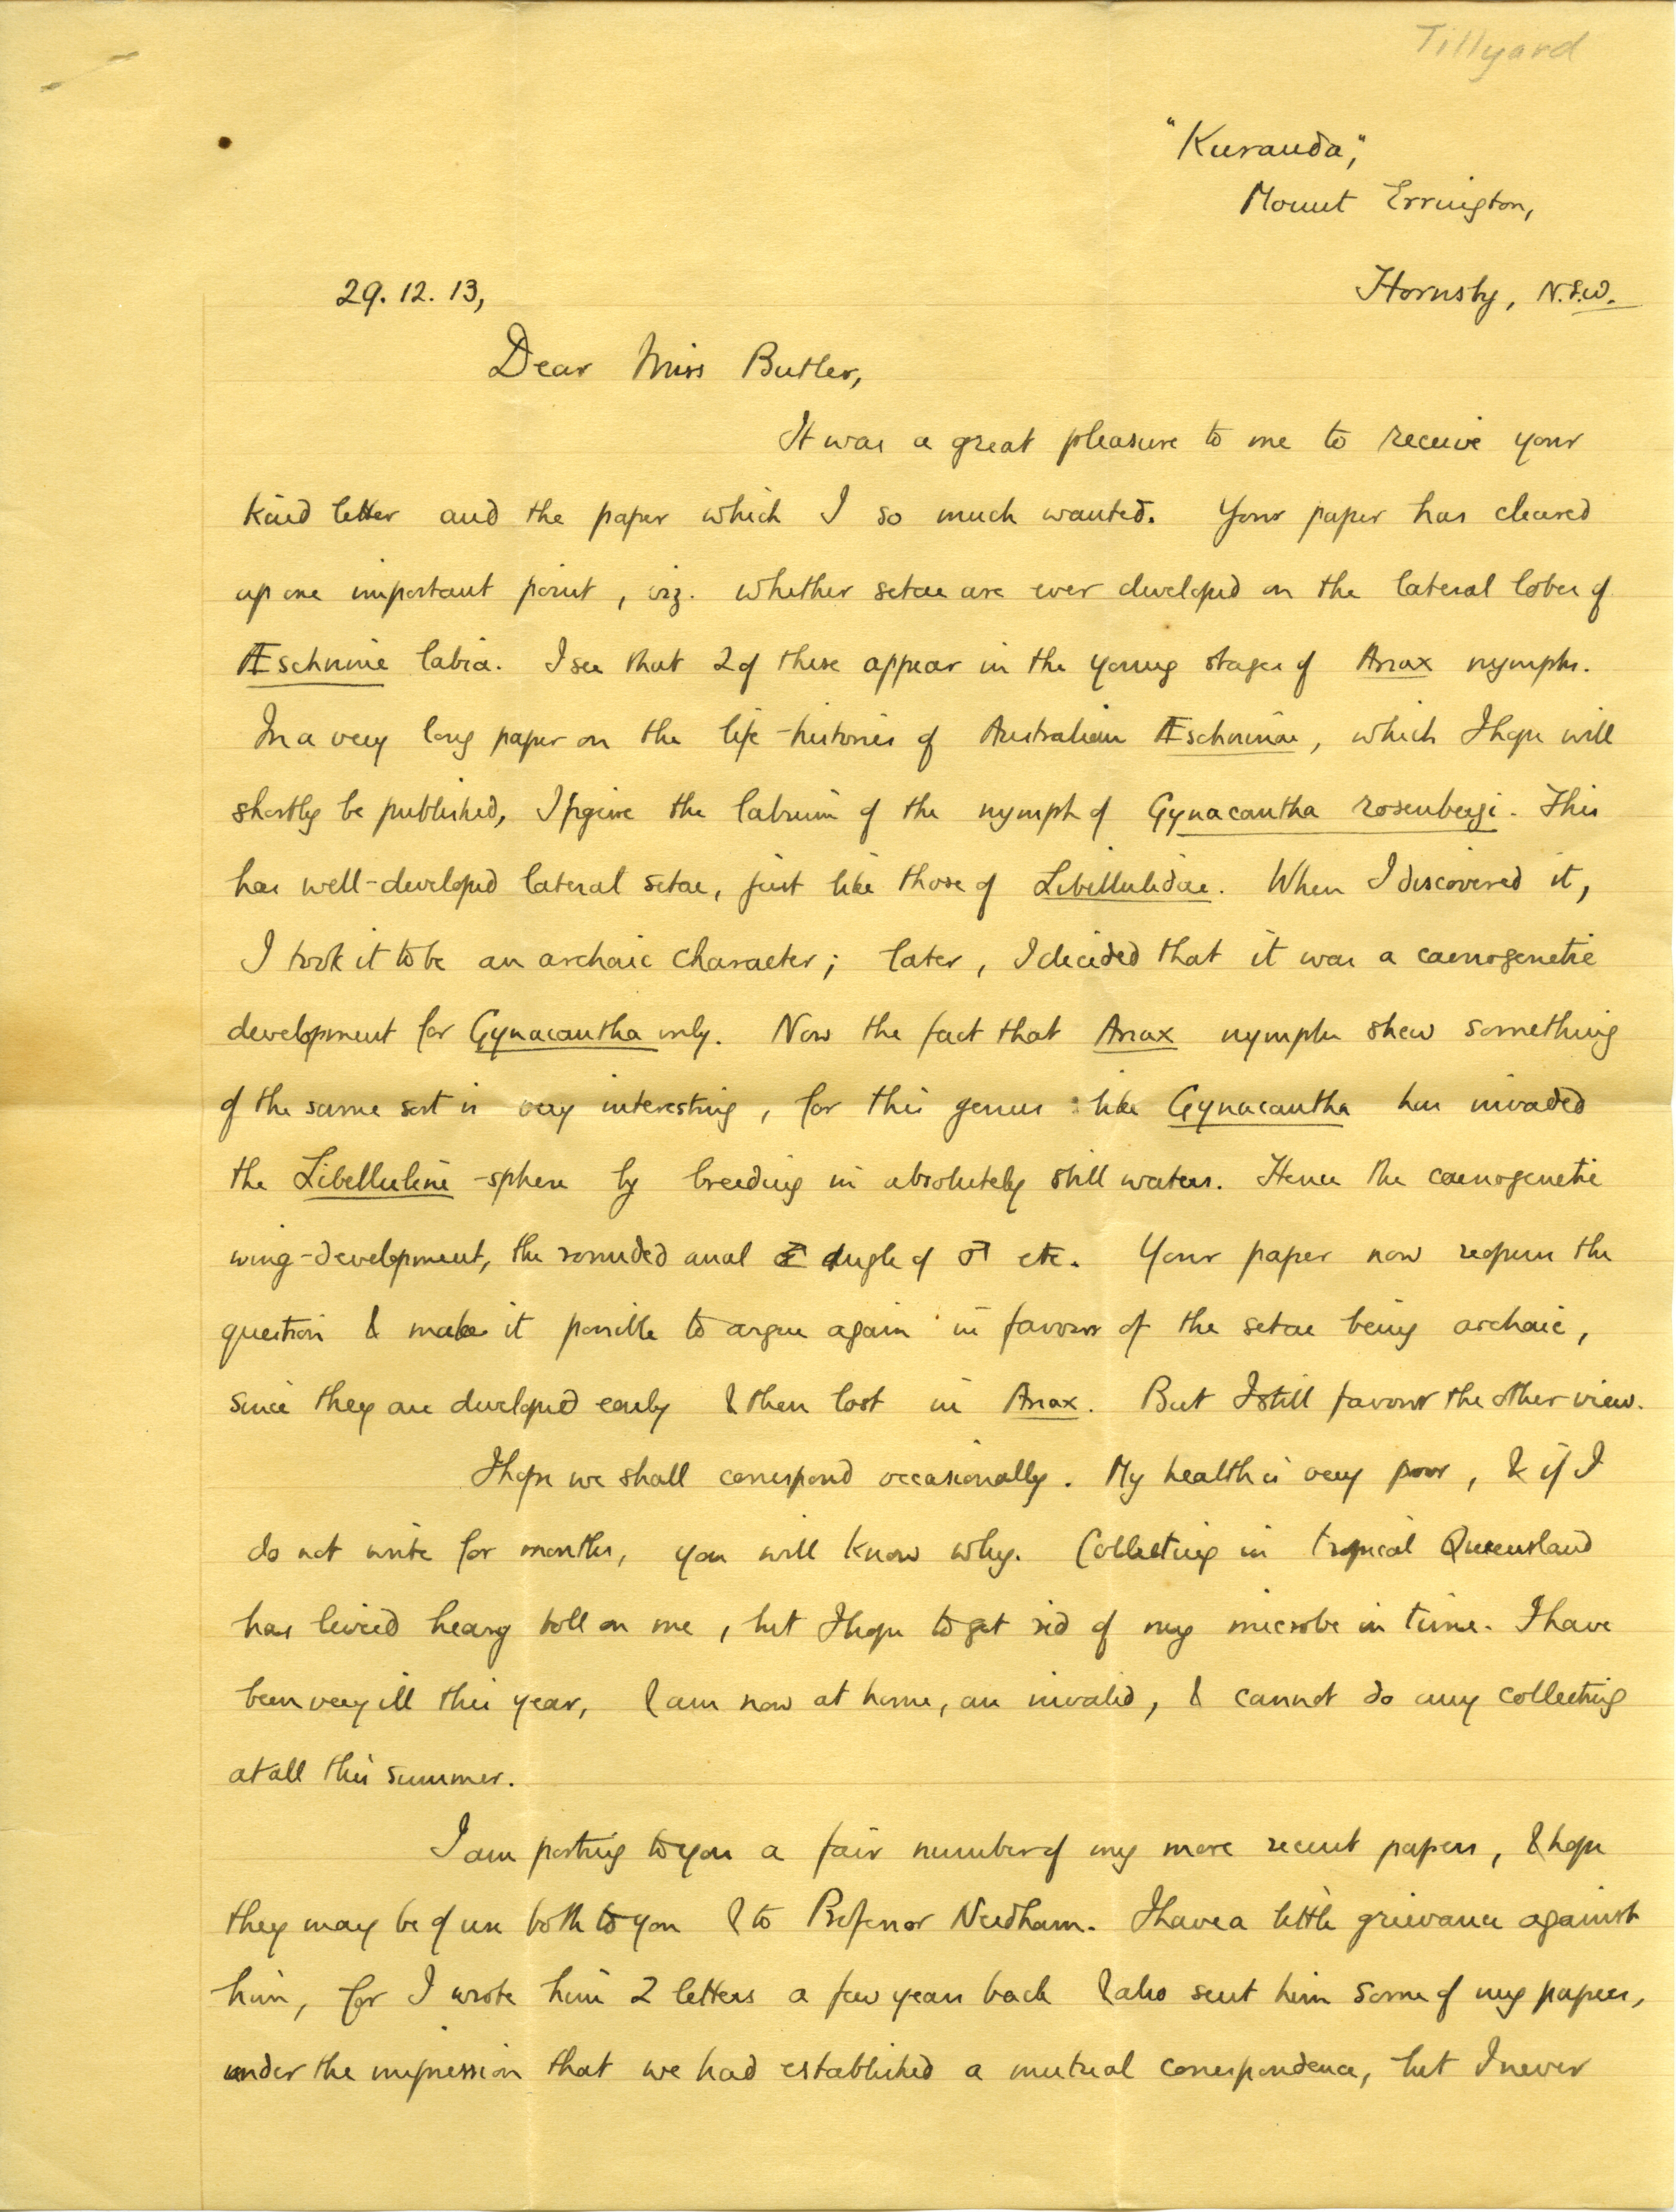 Tillyard
"Kuranda",
Mount Errington,
29. 12. 13,
Hornsby, N.S.W.
Dear Miss Butler,
It was a great pleasure to me to receive your
kind letter and the paper which I so much wanted. Your paper has cleared
up one important point, viz. whether setae are ever developed on the lateral lobes of
Æschnine labia. I see that 2 of these appear in the young stages of Anax nymphs.
In a very long paper on the life-histories of Australian Æschninae, which I hope will
shortly be published, I figure the labium of the nymph of Gynacantha rosenbergi. This
has well-developed lateral setae, just like those of Libellulidae. When I discovered it,
I took it to be an archaic character; later, I decided that it was a caenogenetic
development for Gynacantha only. Now the fact that Anax nymphs shew something
of the same sort is very interesting, for this genus like Gynacantha has invaded
the Libelluline-sphere by breeding in absolutely still waters. Hence the caenogenetic
wing-development, the rounded anal angle of ♂ etc. Your paper now reopens the
question & makes it possible to argue again in favour of the setae being archaic,
since they are developed early & then lost in Anax. But I still favour the other view.
I hope we shall correspond occasionally. My health is very poor, & if I
do not write for months, you will know why. Collecting in tropical Queensland
has levied heavy toll on me, but I hope to get rid of my microbe in time. I have
been very ill this year, & am now at home, an invalid, & cannot do any collecting
at all this summer.
I am posting to you a fair number of my more recent papers, & hope
they may be of use both to you & to Professor Needham. I have a little grievance against
him, for I wrote him 2 letters a few years back & also sent him some of my papers,
under the impression that we had established a mutual correspondence, but I never